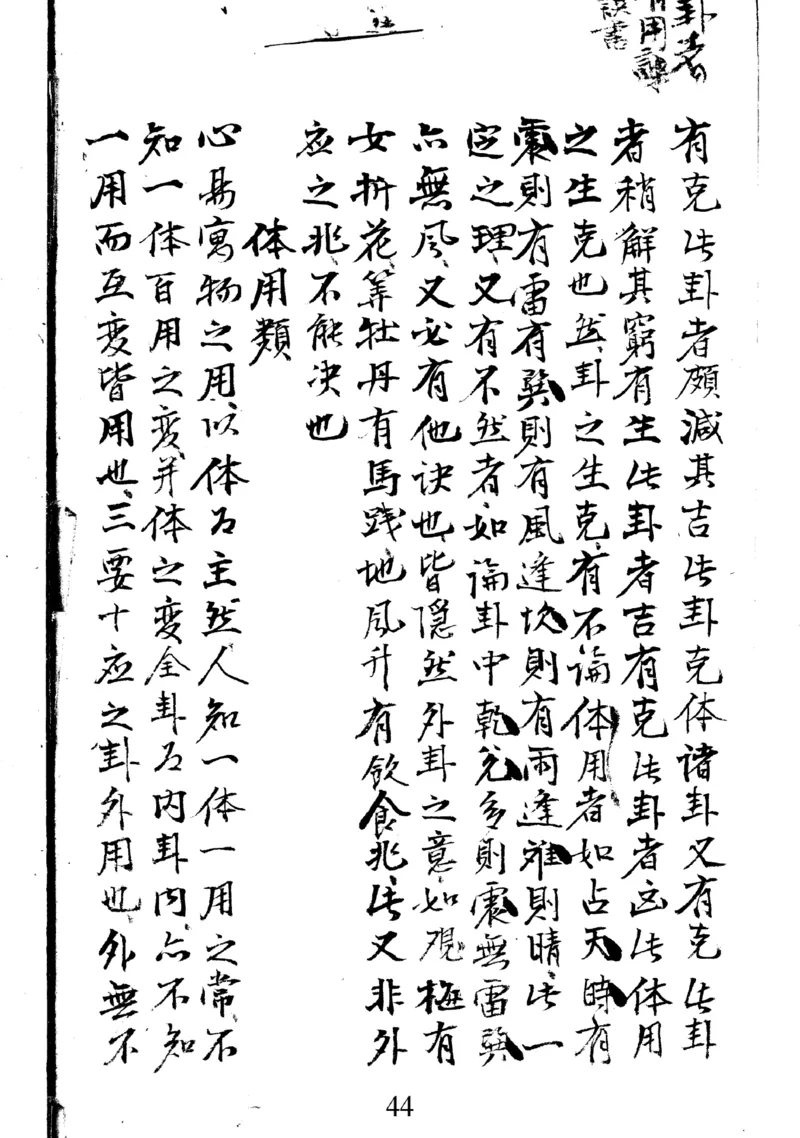 卦者
有用訣
訣書
有克此卦者頗減其吉此卦克体諸卦又有克此卦
者稍解其窮有生此卦者吉有克此卦者凶此体用
之生克也然卦之生克有不論体用者如占天時有
震則有雷有巽則有風逢坎則有雨逢离則晴此一
定之理又有不然者如論卦中乾兑多則震無雷巽
亦無風又必有他訣也皆隱然外卦之意如观梅有
女折花筭牡丹有馬践地風升有飲食兆此又非外
应之兆不能决也
体用類
心易寓物之用以体为主然人知一体一用之常不
知一体百用之变并体之变全卦为内卦内亦不知
一用而互变皆用也三要十应之卦外用也外無不
44